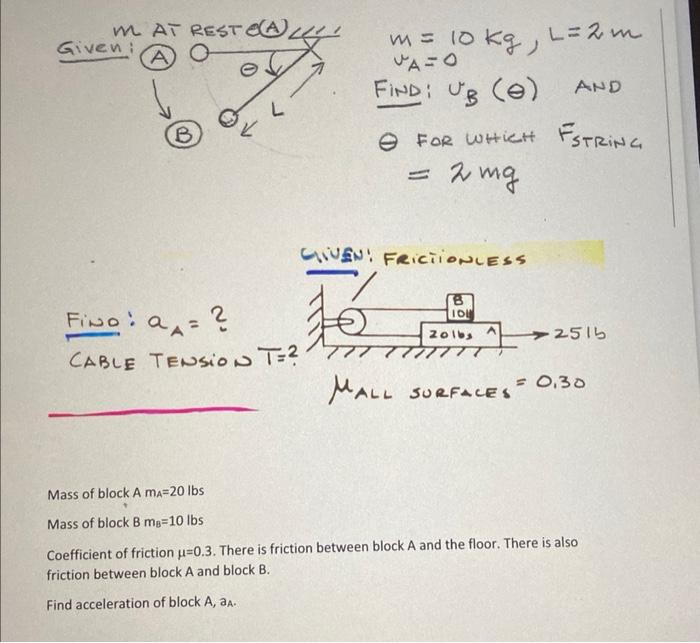 m AT REST @(A)
Given: (A) θ
L
(B)
m = 10 kg, L = 2 m
v_A = 0
FIND: v_B (θ) AND
θ FOR WHICH F_STRING
= 2 mg
GIVEN: FRICTIONLESS
FIND: a_A = ?
CABLE TENSION T=?
B
10#
20 lbs A → 25 lb
μ_ALL SURFACES = 0.30
Mass of block A mA=20 lbs
Mass of block B mB=10 lbs
Coefficient of friction μ=0.3. There is friction between block A and the floor. There is also
friction between block A and block B.
Find acceleration of block A, aA.